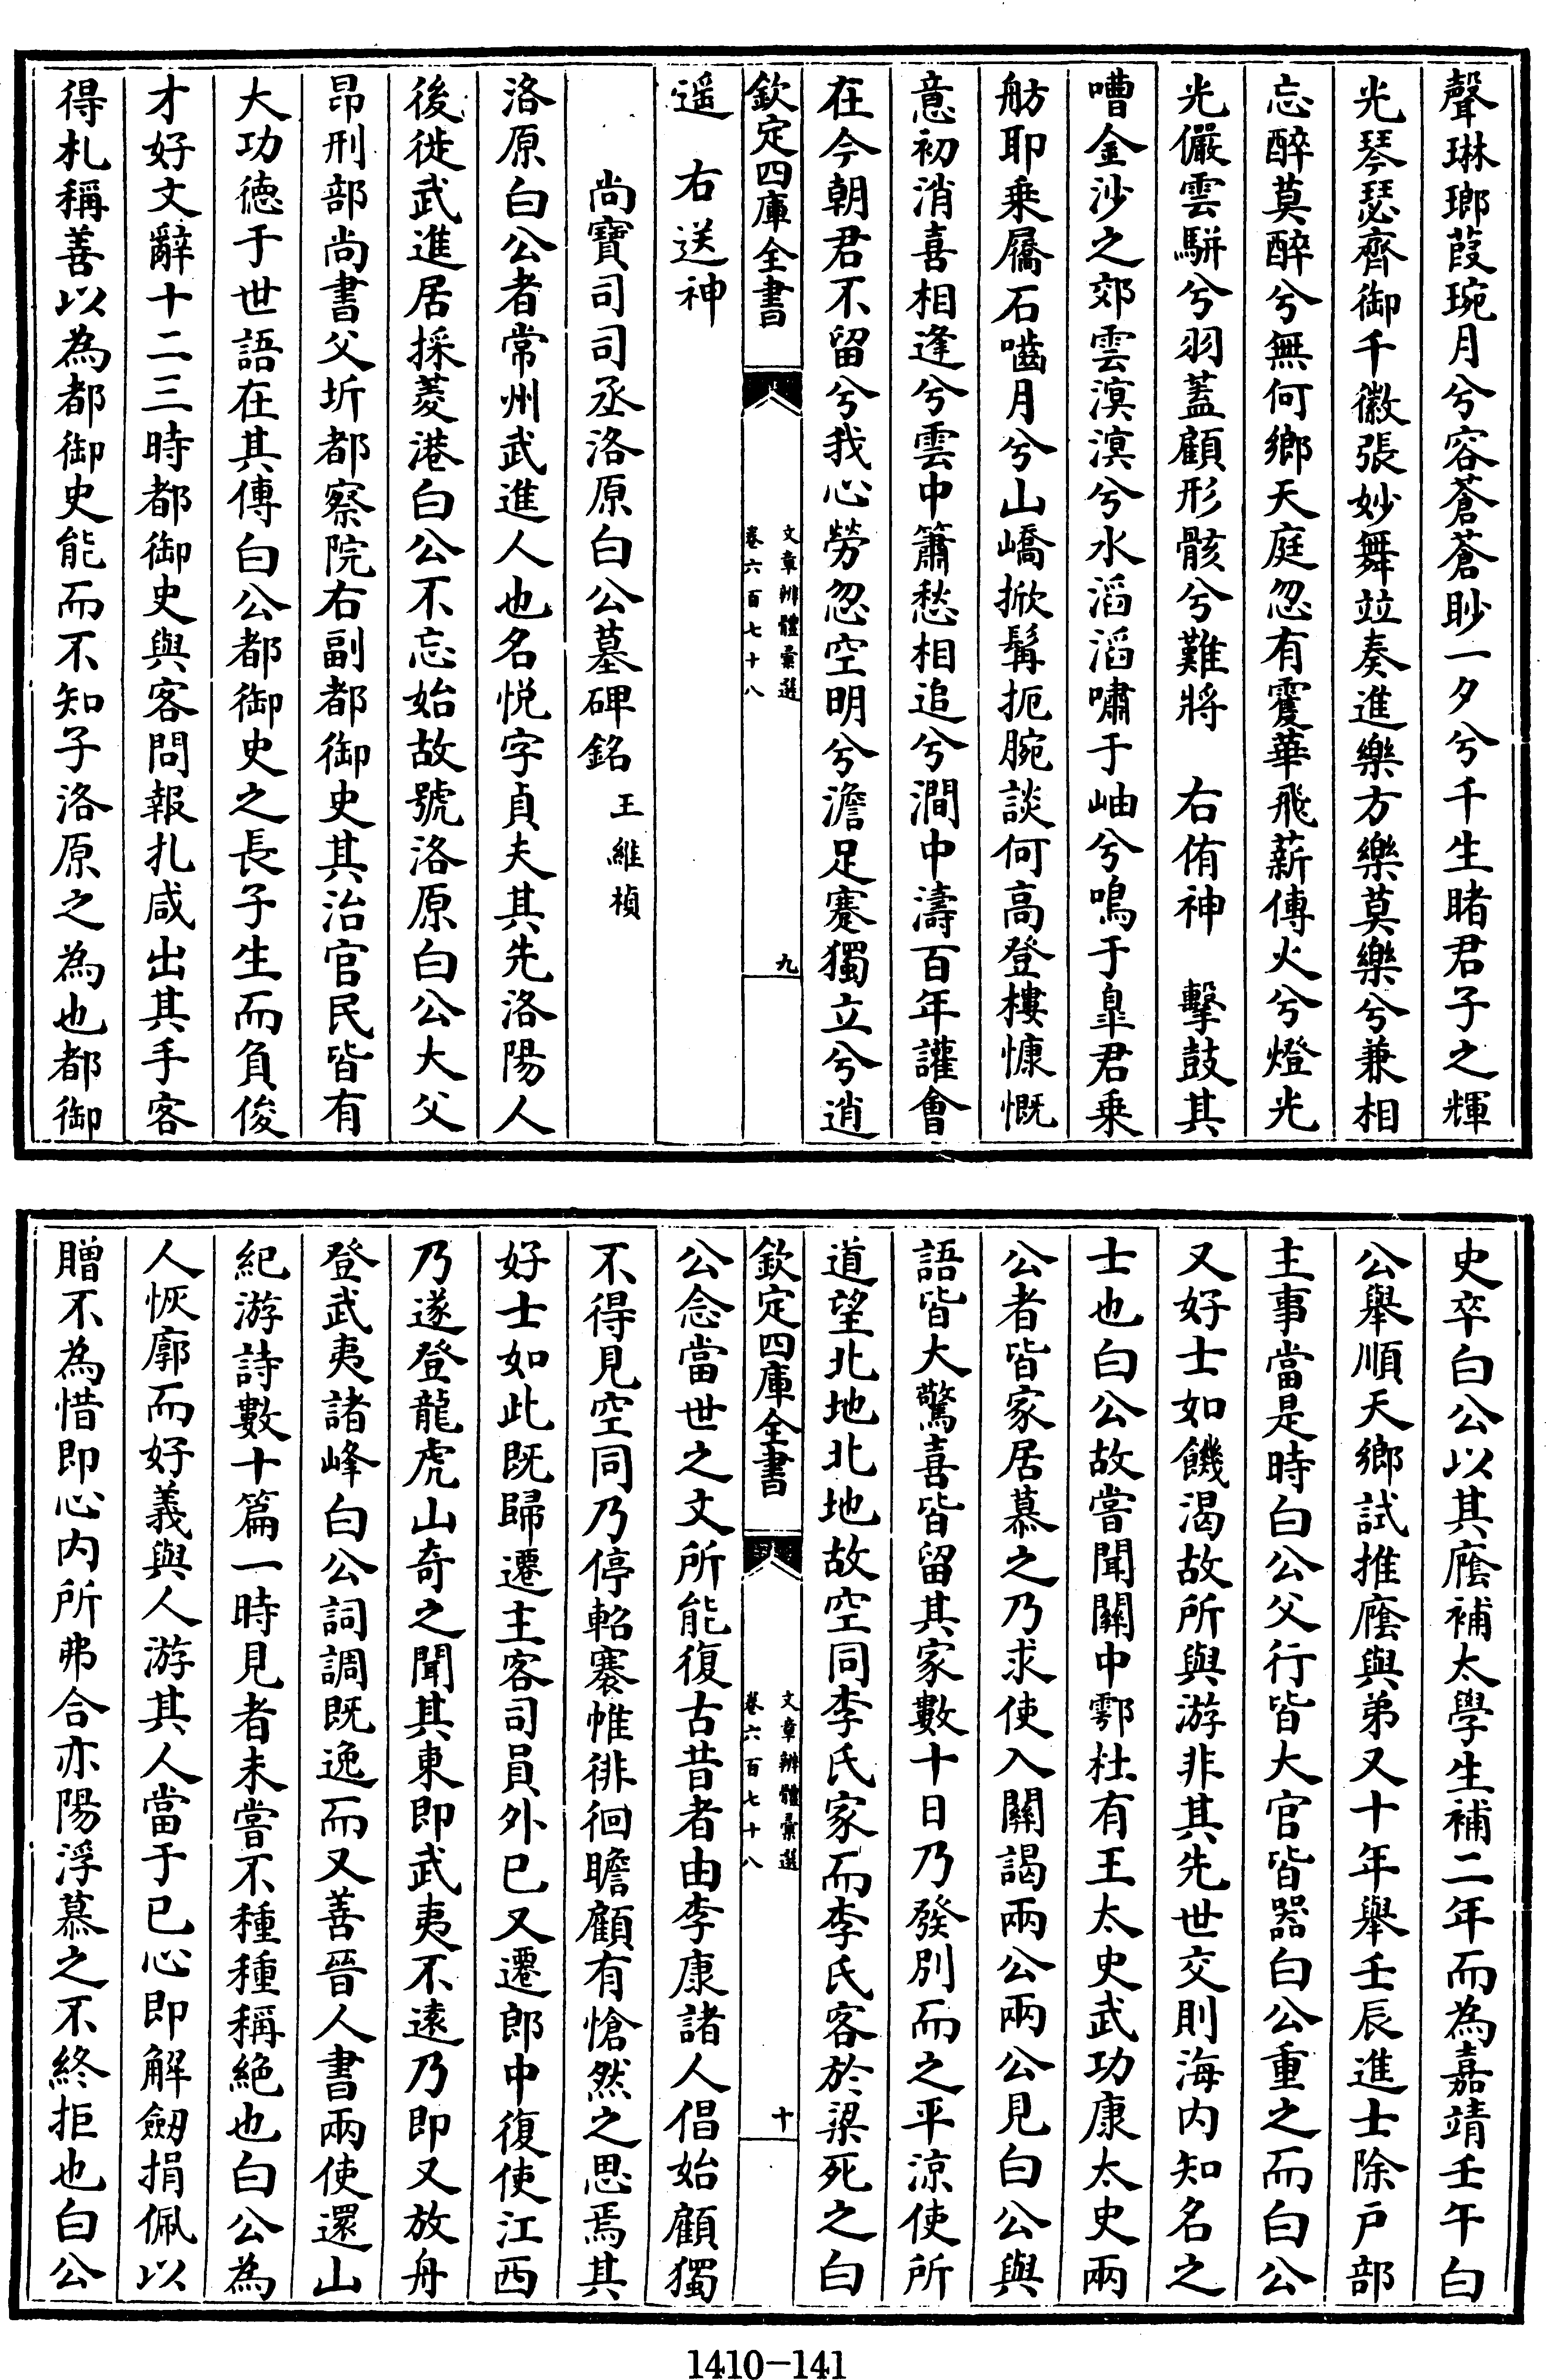 聲琳瑯葭琬月兮容蒼蒼眇一夕兮千生睹君子之輝
光琴瑟齊御千徽張妙舞竝奏進樂方樂莫樂兮兼相
忘醉莫醉兮無何鄉天庭忽有霻華飛薪傳火兮燈光
光儼雲駢兮羽蓋顧形骸兮難將　右侑神　擊鼓其
嘈金沙之郊雲溟溟兮水滔滔嘯于岫兮鳴于臯君乗
舫耶乗屩石嚙月兮山嶠掀髯扼腕談何高登樓慷慨
意初消喜相逢兮雲中簫愁相追兮澗中濤百年讙會
在今朝君不留兮我心勞忽空明兮澹足蹇獨立兮逍
欽定四庫全書
文章辨體彙選
卷六百七十八
九
遥　右送神
尚寶司司丞洛原白公墓碑銘 王維楨
洛原白公者常州武進人也名悦字貞夫其先洛陽人
後徙武進居採菱港白公不忘始故號洛原白公大父
昂刑部尚書父圻都察院右副都御史其治官民皆有
大功徳于世語在其傳白公都御史之長子生而負俊
才好文辭十二三時都御史與客問報扎咸出其手客
得札稱善以為都御史能而不知子洛原之為也都御
史卒白公以其廕補太學生補二年而為嘉靖壬午白
公舉順天鄉試推廕與弟又十年舉壬辰進士除戸部
主事當是時白公父行皆大官皆器白公重之而白公
又好士如饑渴故所與游非其先世交則海内知名之
士也白公故嘗聞關中鄠杜有王太史武功康太史兩
公者皆家居慕之乃求使入關謁兩公兩公見白公與
語皆大驚喜皆留其家數十日乃發別而之平涼使所
道望北地北地故空同李氏家而李氏客於梁死之白
欽定四庫全書
文章辨體彙選
卷六百七十八
十
公念當世之文所能復古昔者由李康諸人倡始顧獨
不得見空同乃停軺褰帷徘徊瞻顧有愴然之思焉其
好士如此既歸遷主客司員外已又遷郎中復使江西
乃遂登龍虎山奇之聞其東即武夷不遠乃即又放舟
登武夷諸峰白公詞調既逸而又善晉人書兩使還山
紀游詩數十篇一時見者未嘗不種種稱絶也白公為
人恢廓而好義與人游其人當于已心即解劔捐佩以
贈不為惜即心内所弗合亦陽浮慕之不終拒也白公
1410-141